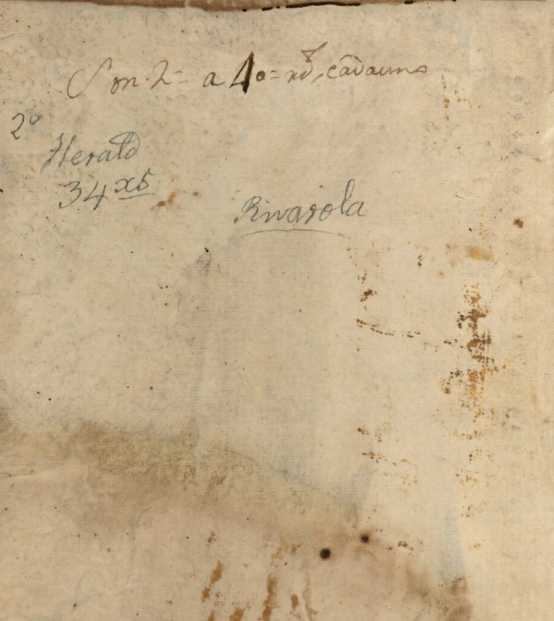 Son 2 = a 40 = rs, cadauno
2º
Herald
34 x5
Rivarola